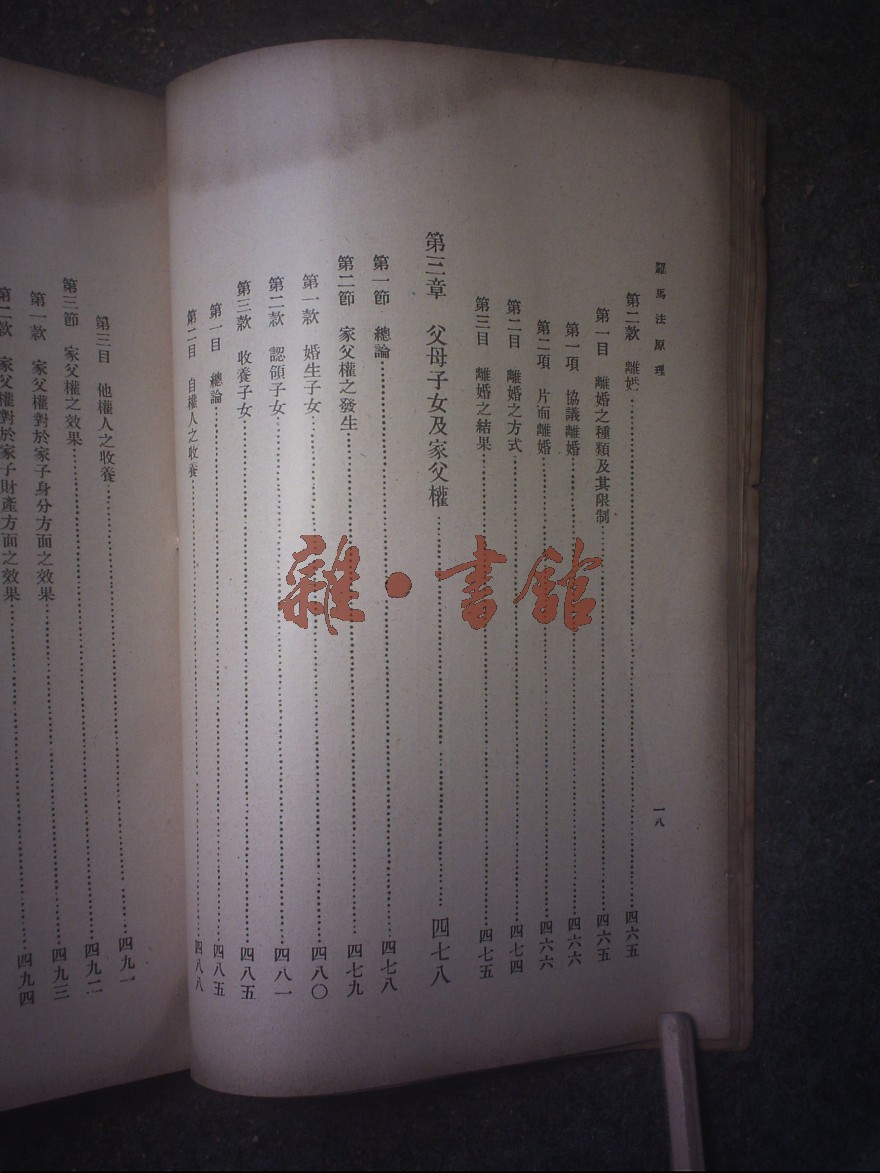 羅馬法原理
一八
第二款　離婚……四六五
第一目　離婚之種類及其限制……四六五
第一項　協議離婚……四六六
第二項　片面離婚……四六六
第二目　離婚之方式……四七四
第三目　離婚之結果……四七五
第三章　父母子女及家父權……四七八
第一節　總論……四七八
第二節　家父權之發生……四七九
第一款　婚生子女……四八〇
第二款　認領子女……四八一
第三款　收養子女……四八五
第一目　總論……四八五
第二目　自權人之收養……四八八
第三目　他權人之收養……四九一
第三節　家父權之效果……四九二
第一款　家父權對於家子身分方面之效果……四九三
第二款　家父權對於家子財產方面之效果……四九四
雜·書館